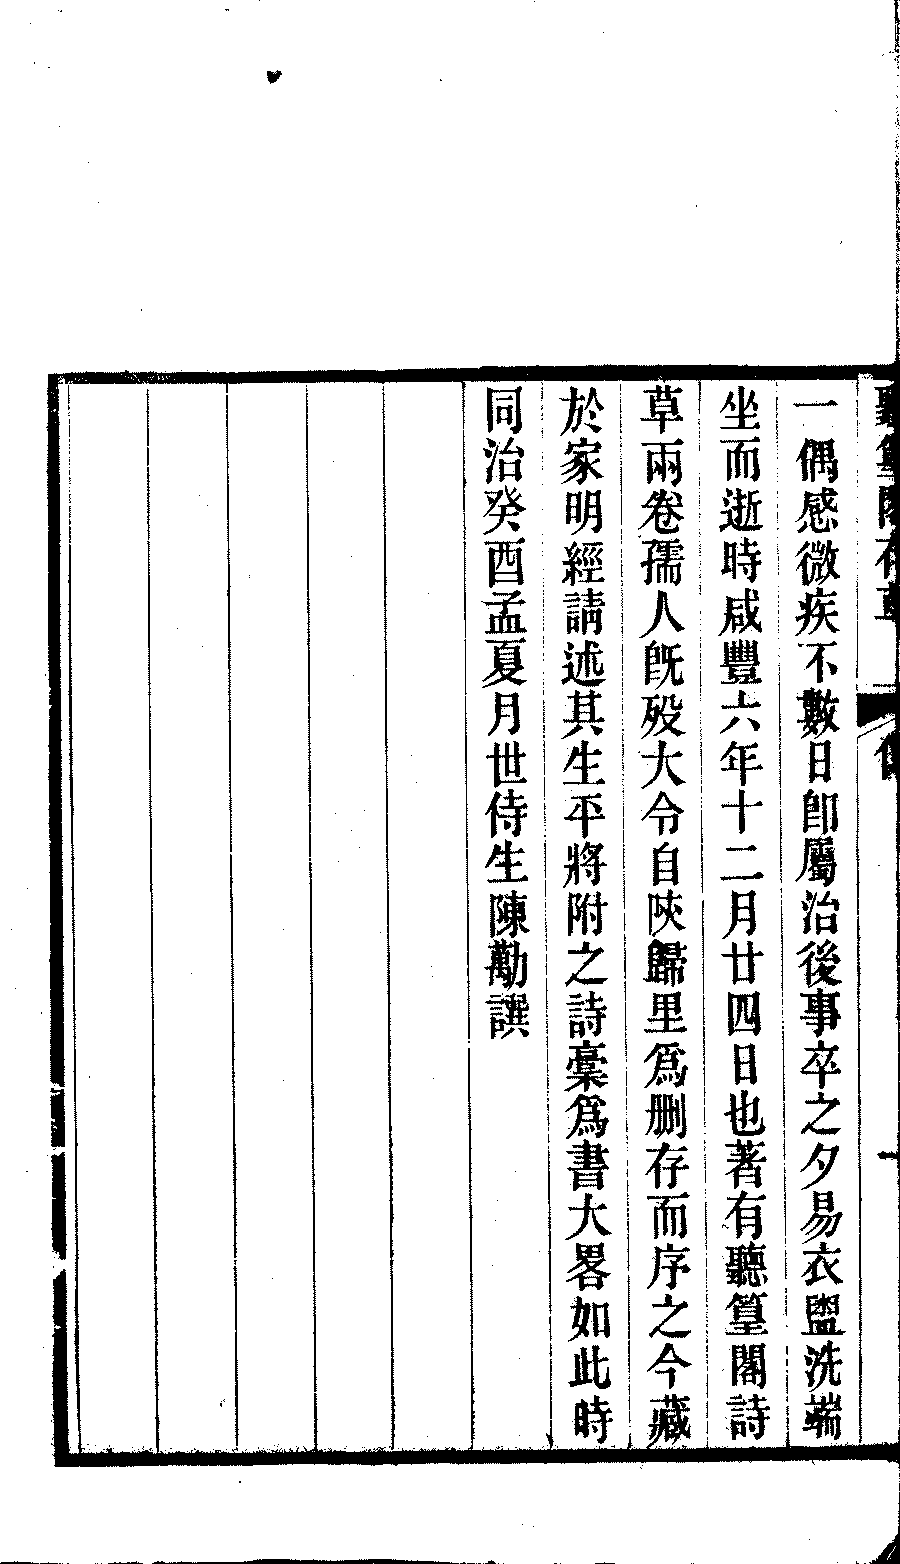 一偶感微疾不數日卽屬治後事卒之夕易衣盥洗端
坐而逝時咸豐六年十二月廿四日也著有聽篁閣詩
草兩卷孺人旣歿大令自陝歸里爲删存而序之今藏
於家明經請述其生平將附之詩稾爲書大畧如此時
同治癸酉孟夏月世侍生陳勱譔